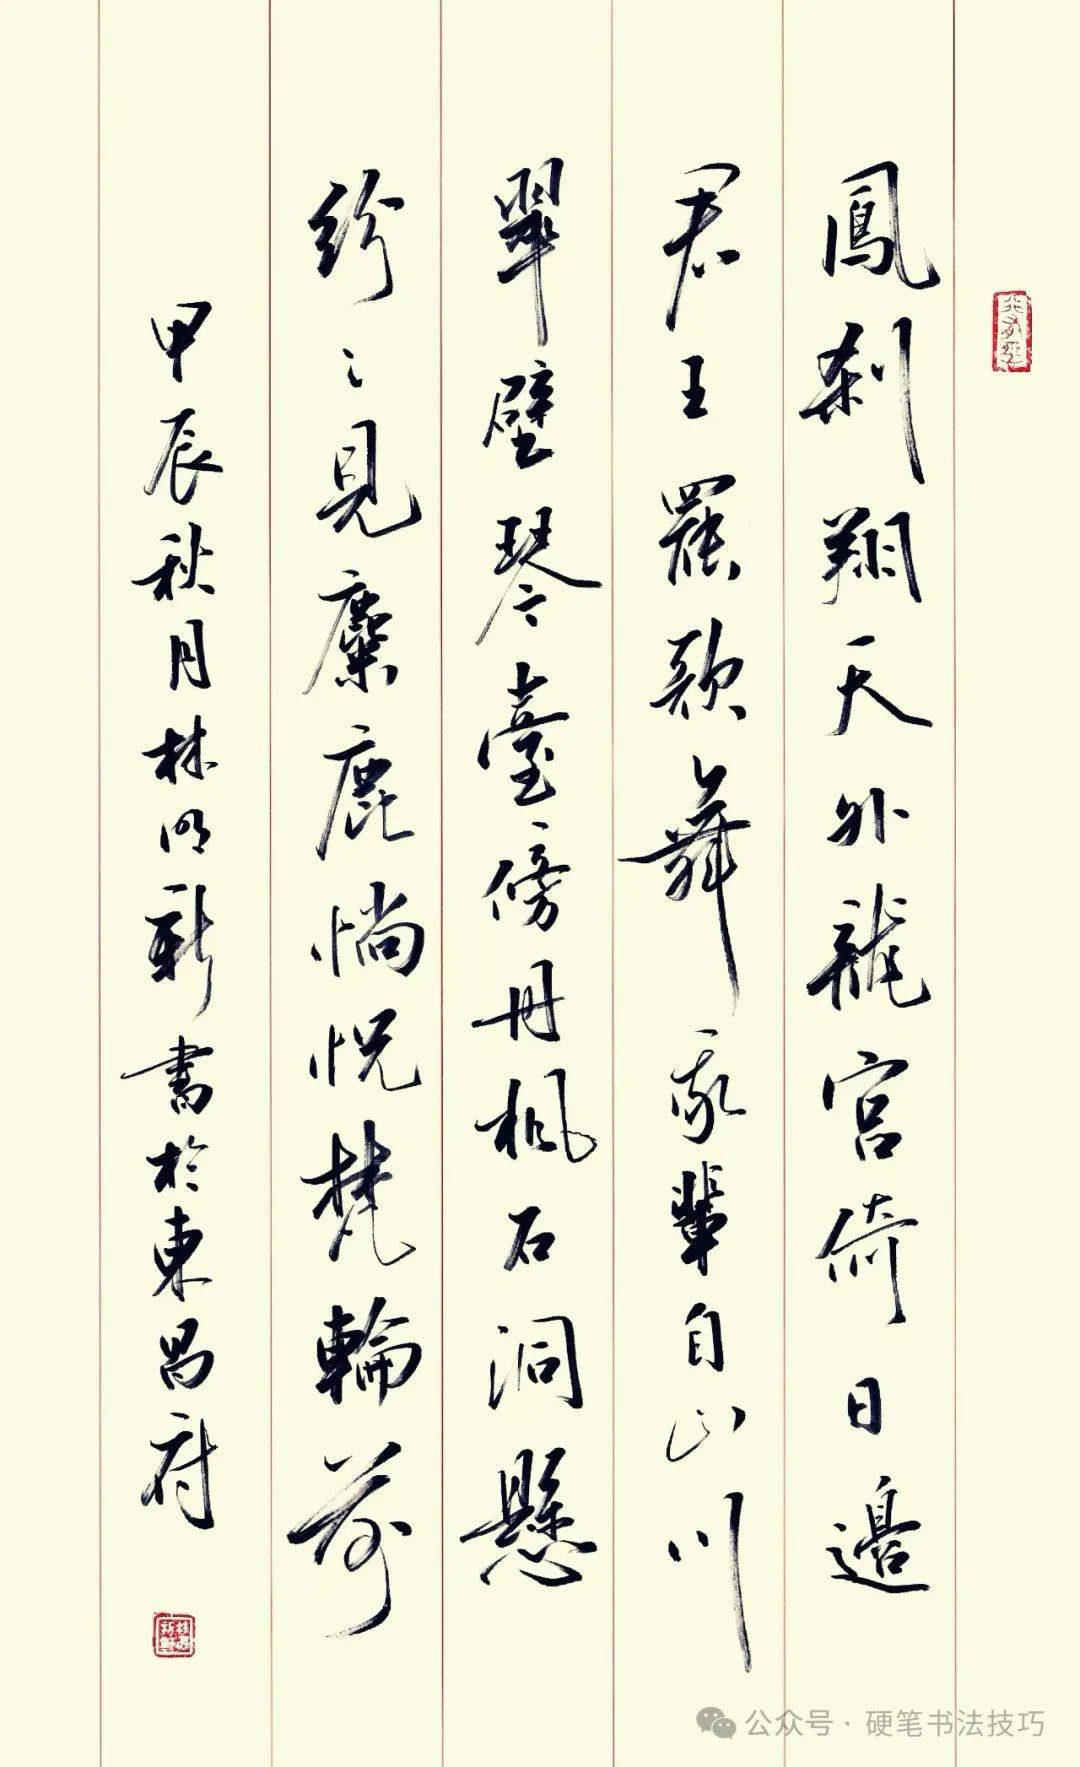 鳳刹翔天外龍宫倚日邊
君王罷歌舞我輩自山川
翠壁琴臺傍丹楓石洞懸
紛〻見麋鹿惝怳梵輪前
甲辰秋月林明新書於東昌府
公众号 · 硬笔书法技巧